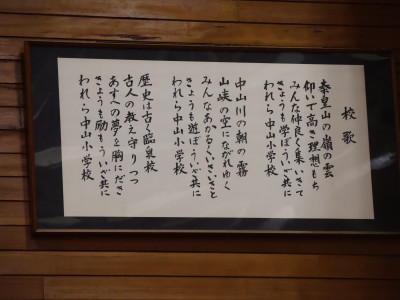 校歌
秦皇山の嶺の雲
仰いで高き理想もち
みんな仲良く集いきて
きょうも学ぼういざ共に
われら中山小学校
中山川の朝の霧
山峡の空にながれゆく
みんなあかるくいきいきと
きょうも遊ぼういざ共に
われら中山小学校
歴史は古く臨泉校
古人の教え守りつつ
あすへの夢を胸にだき
きょうも励もういざ共に
われら中山小学校